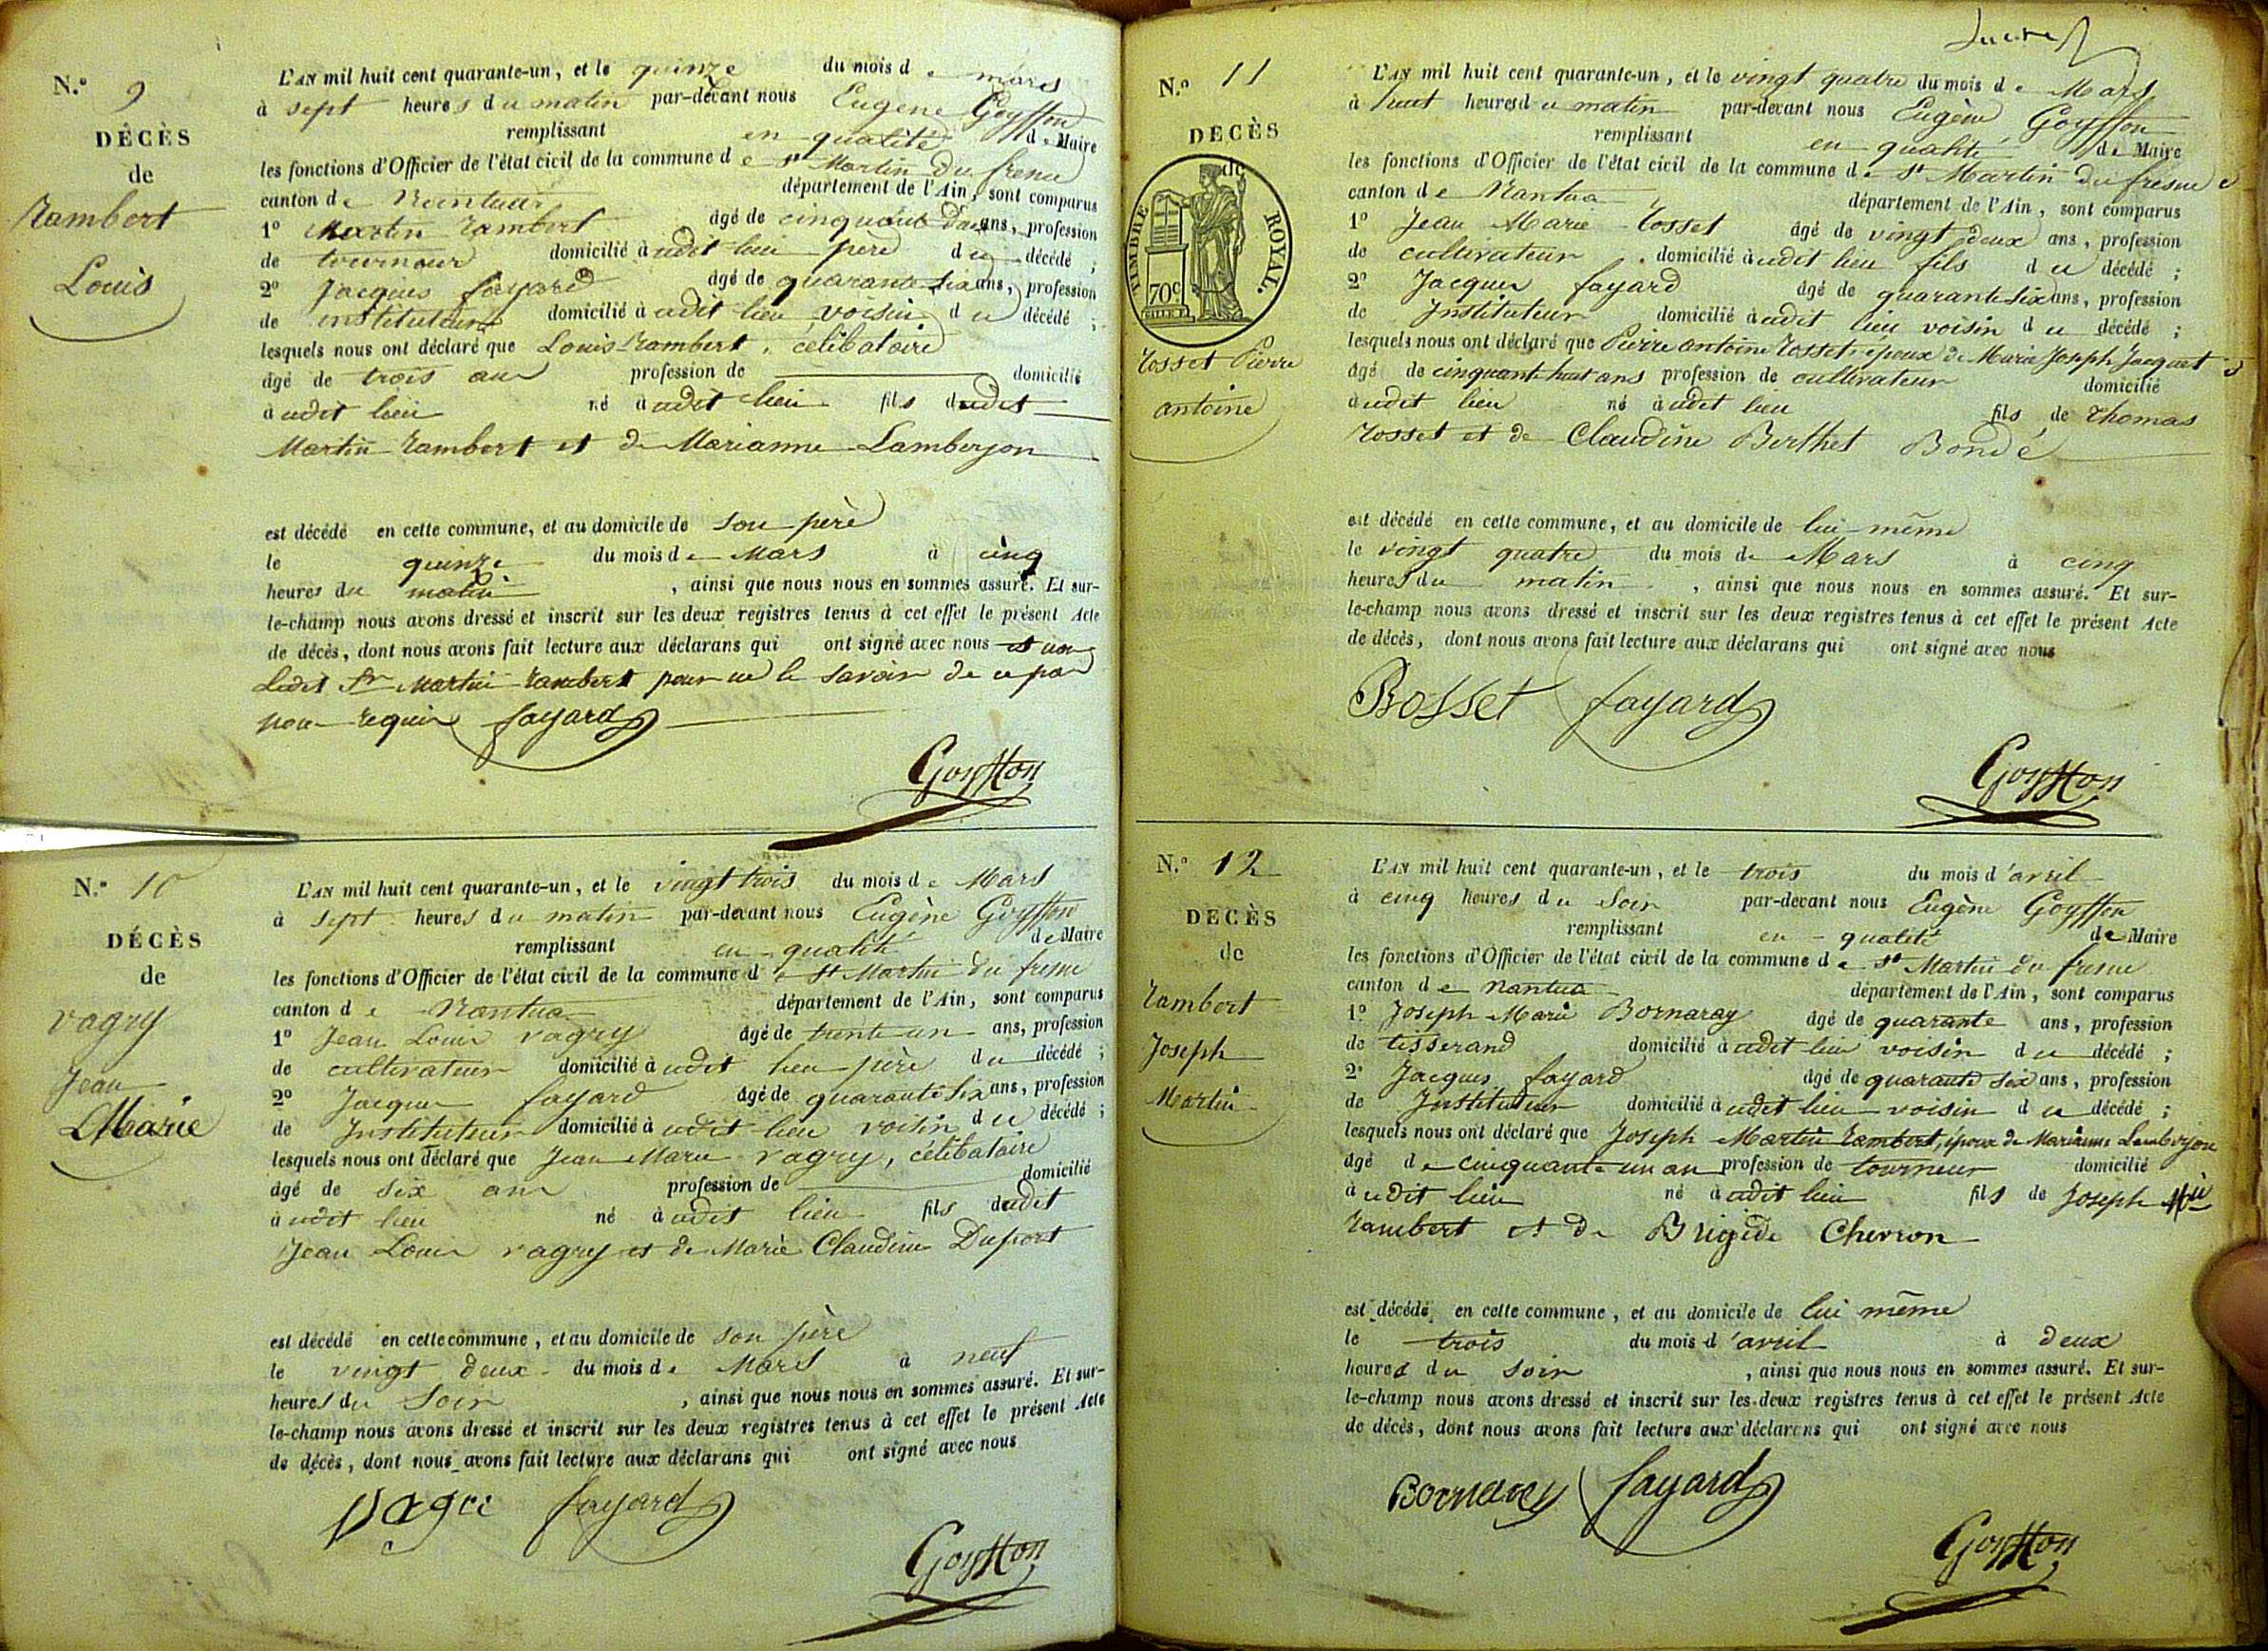 N.o 9
DÉCÈS
de
Rambert
Louis
L'AN mil huit cent quarante-un, et le quinze du mois de mars
à sept heures du matin par-devant nous Eugène Goyffon
remplissant en qualité de Maire
les fonctions d'Officier de l'état civil de la commune de St Martin du fresne
canton de Nantua département de l'Ain, sont comparus
1o Martin Rambert âgé de cinquante ans, profession
de tourneur domicilié à udit lieu père du décédé ;
2o Jacques fayard âgé de quarante six ans, profession
de instituteur domicilié à udit lieu voisin du décédé ;
lesquels nous ont déclaré que Louis Rambert, célibataire
âgé de trois ans profession de domicilié
à udit lieu né à udit lieu fils dudit
Martin Rambert et de Marianne Lamberjon
est décédé en cette commune, et au domicile de son père
le quinze du mois de Mars à cinq
heures du matin, ainsi que nous nous en sommes assuré. Et sur-
le-champ nous avons dressé et inscrit sur les deux registres tenus à cet effet le présent Acte
de décès, dont nous avons fait lecture aux déclarans qui ont signé avec nous et non
Ledit Sr Martin Rambert pour ne le savoir de ce par
nous requis fayard
Goyffon
N.o 10
DÉCÈS
de
vagry
Jean
Marie
L'AN mil huit cent quarante-un, et le vingt trois du mois de Mars
à sept heures du matin par-devant nous Eugène Goyffon
remplissant en qualité de Maire
les fonctions d'Officier de l'état civil de la commune de St Martin du fresne
canton de Nantua département de l'Ain, sont comparus
1o Jean Louis vagry âgé de trente un ans, profession
de cultivateur domicilié à udit lieu père du décédé ;
2o Jacques fayard âgé de quarante six ans, profession
de Instituteur domicilié à udit lieu voisin du décédé ;
lesquels nous ont déclaré que Jean Marie vagry, célibataire
âgé de six ans profession de domicilié
à udit lieu né à udit lieu fils dudit
Jean Louis vagry et de Marie Claudine Dufort
est décédé en cette commune, et au domicile de son père
le vingt deux du mois de Mars à neuf
heures du Soir, ainsi que nous nous en sommes assuré. Et sur-
le-champ nous avons dressé et inscrit sur les deux registres tenus à cet effet le présent Acte
de décès, dont nous avons fait lecture aux déclarans qui ont signé avec nous
Vagri fayard
Goyffon
N.o 11
DÉCÈS
de
TIMBRE ROYAL.
70c
Rosset Pierre
antoine
L'AN mil huit cent quarante-un, et le vingt quatre du mois de Mars
à huit heures du matin par-devant nous Eugène Goyffon
remplissant en qualité de Maire
les fonctions d'Officier de l'état civil de la commune de St Martin du fresne
canton de Nantua département de l'Ain, sont comparus
1o Jean Marie Rosset âgé de vingt deux ans, profession
de cultivateur domicilié à udit lieu fils du décédé ;
2o Jacques fayard âgé de quarante six ans, profession
de Instituteur domicilié à udit lieu voisin du décédé ;
lesquels nous ont déclaré que Pierre antoine Rosset, époux de Marie Joseph Jacquet
âgé de cinquante huit ans profession de cultivateur domicilié
à udit lieu né à udit lieu fils de Thomas
Rosset et de Claudine Berthet Bondé
est décédé en cette commune, et au domicile de lui même
le vingt quatre du mois de Mars à cinq
heures du matin, ainsi que nous nous en sommes assuré. Et sur-
le-champ nous avons dressé et inscrit sur les deux registres tenus à cet effet le présent Acte
de décès, dont nous avons fait lecture aux déclarans qui ont signé avec nous
Rosset fayard
Goyffon
N.o 12
DÉCÈS
de
Rambert
Joseph
Martin
L'AN mil huit cent quarante-un, et le trois du mois d'avril
à cinq heures du Soir par-devant nous Eugène Goyffon
remplissant en qualité de Maire
les fonctions d'Officier de l'état civil de la commune de St Martin du fresne
canton de Nantua département de l'Ain, sont comparus
1o Joseph Marie Bornaray âgé de quarante ans, profession
de tisserand domicilié à udit lieu voisin du décédé ;
2o Jacques fayard âgé de quarante six ans, profession
de Instituteur domicilié à udit lieu voisin du décédé ;
lesquels nous ont déclaré que Joseph Martin Rambert, époux de Marianne Lamberjon
âgé de cinquante un an profession de tourneur domicilié
à udit lieu né à udit lieu fils de Joseph Mie
Rambert et de Brigide Chevron
est décédé en cette commune, et au domicile de lui même
le trois du mois d'avril à deux
heures du Soir, ainsi que nous nous en sommes assuré. Et sur-
le-champ nous avons dressé et inscrit sur les deux registres tenus à cet effet le présent Acte
de décès, dont nous avons fait lecture aux déclarans qui ont signé avec nous
Bornaray fayard
Goyffon